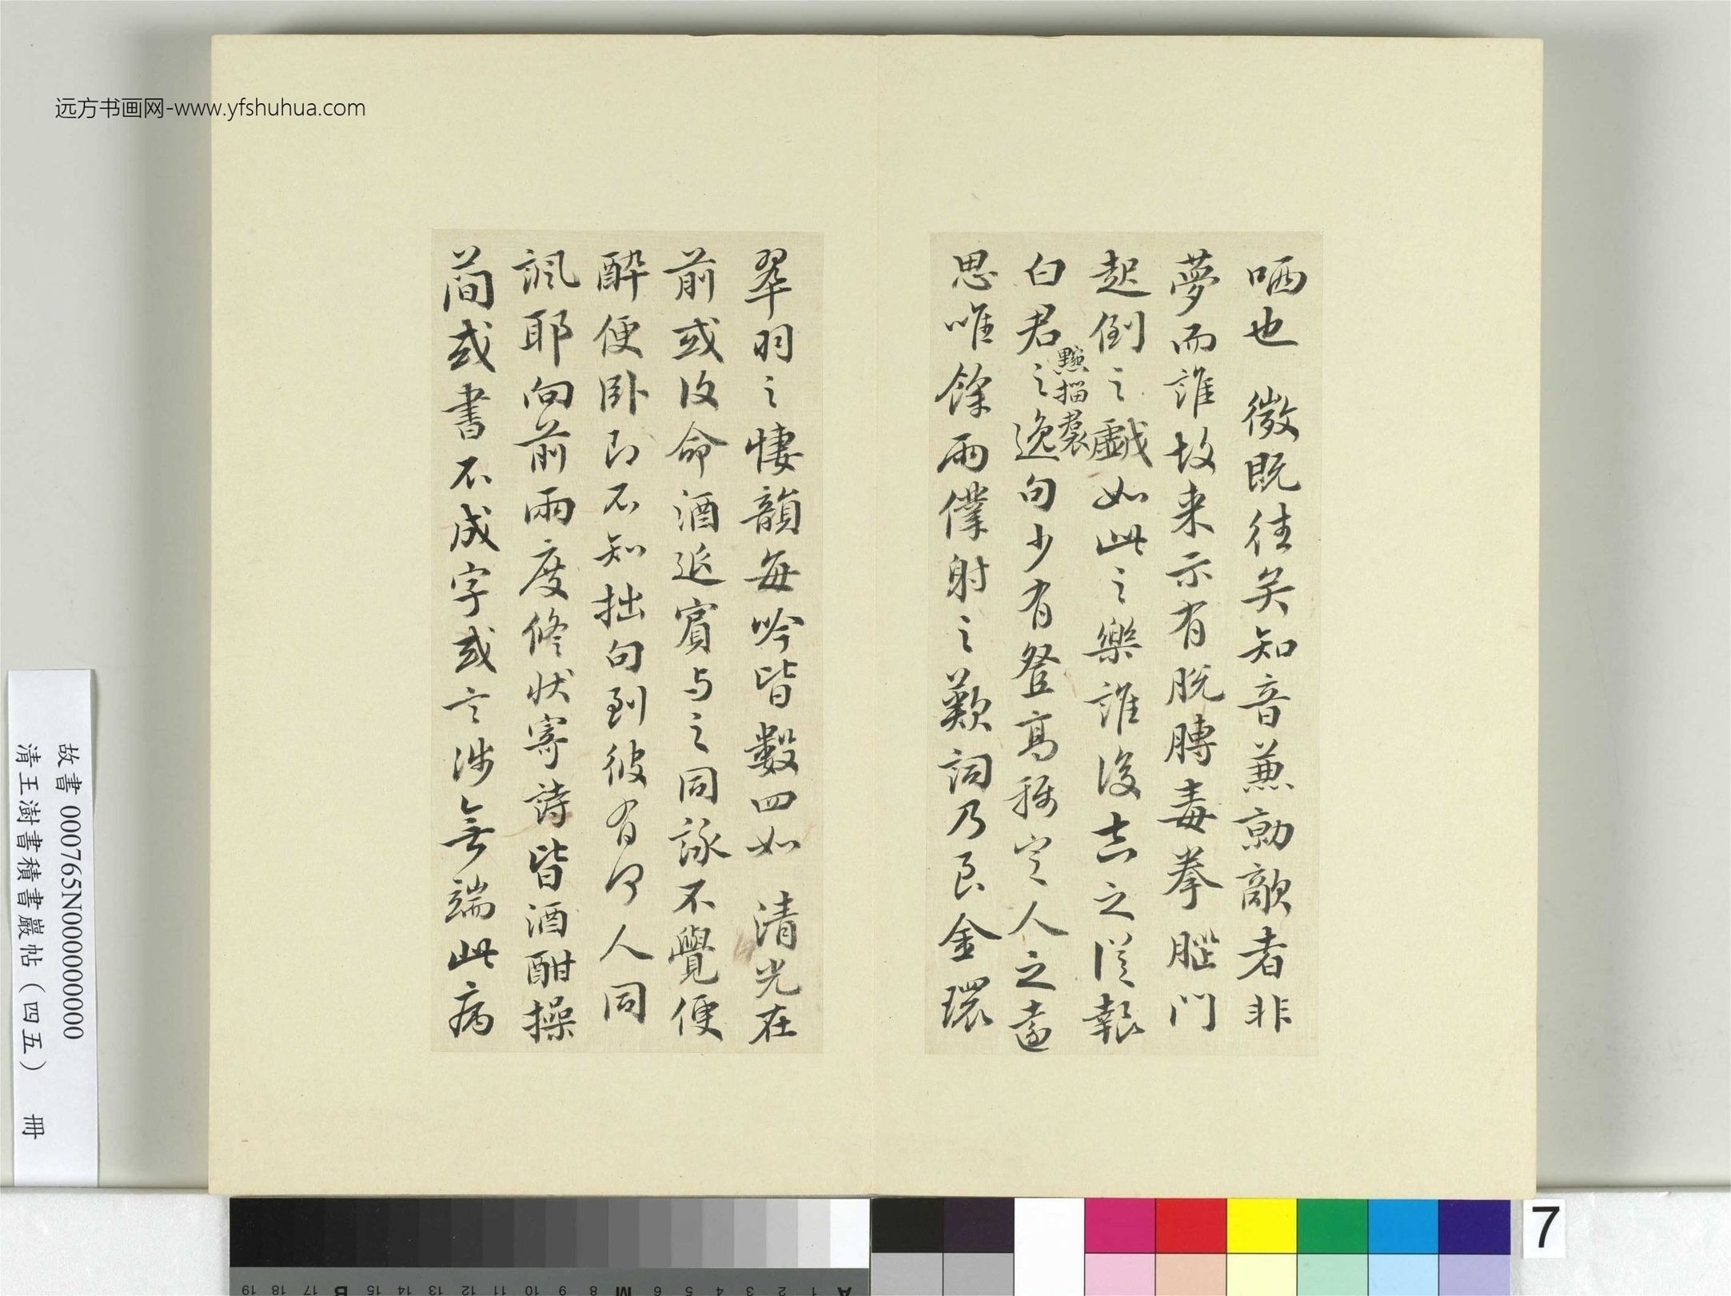 哂也 微既往矣知音兼勍敵者非
夢而誰故来示有脱膊毒拳腦門
起倒之戲如此之樂誰復之從報
白君黦榴裙之逸句少有登高稱是人之遠
思唯餘兩僕射之歎詞乃至金環
翠羽之悽韻每吟皆數四如 清光在
前或復命酒延賓与之同詠不覺便
醉便卧即不知拙句到彼有何人同
諷耶向前兩度修状寄詩皆酒酣操
簡或書不成字或言涉無端此病
故書 000765N000000000
清王澍書積書巖帖（四五） 冊
远方书画网-www.yfshuhua.com
7